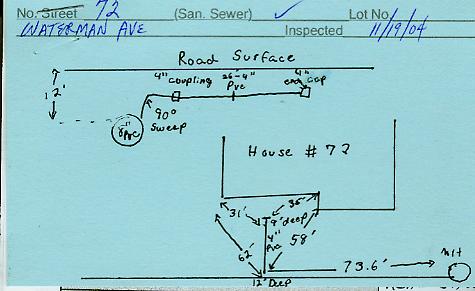 No. Street 72 (San. Sewer) ✓ Lot No.
WATERMAN AVE Inspected 11/19/04
Road Surface
4" coupling 26'-4" Pvc 4" end cap
12'
90° sweep
8" Pvc
House # 72
31' 35'
9' deep
4" Pvc
62' 58'
73.6' MH
12' Deep